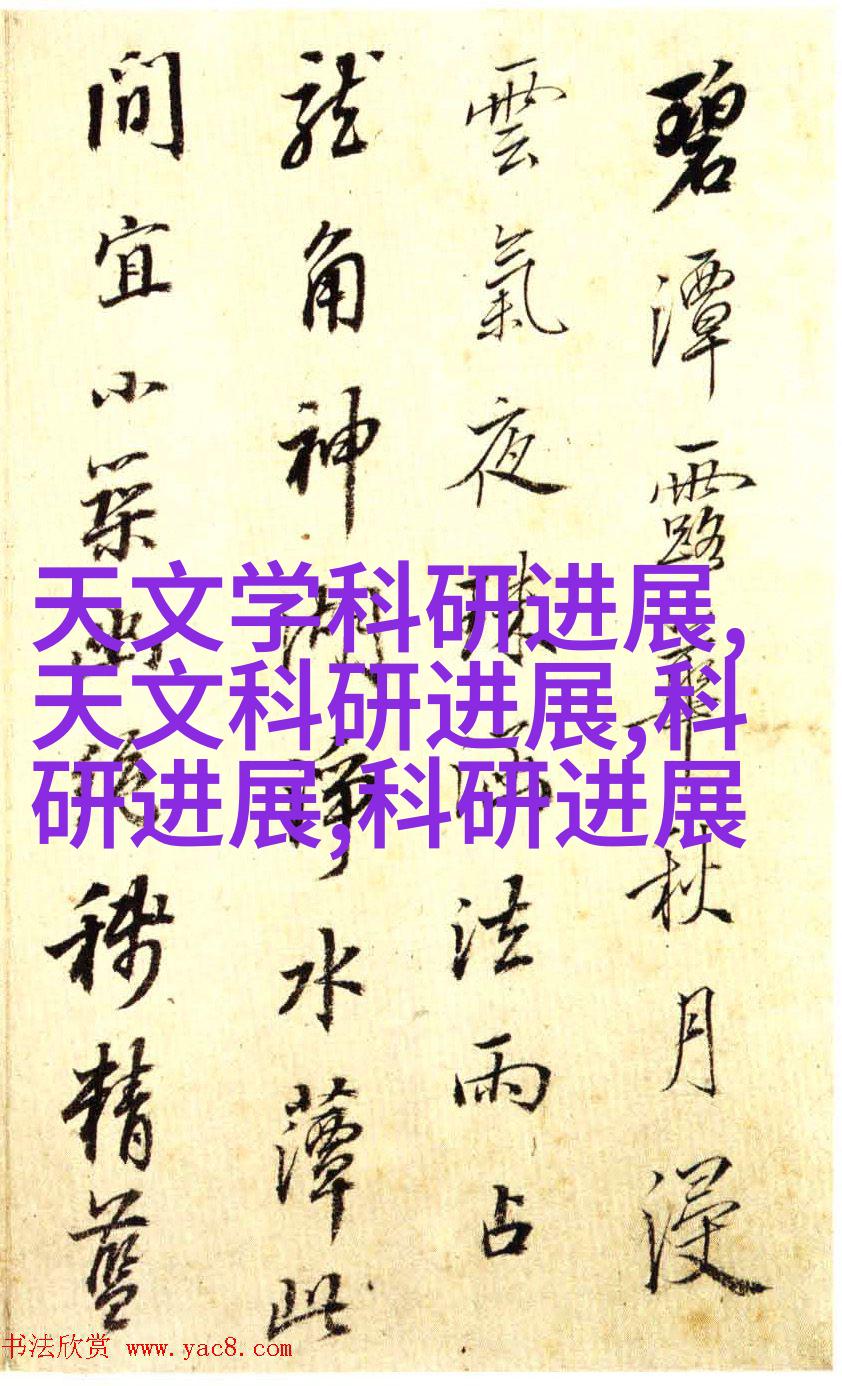 碧潭露華秋月浸
雲氣夜法雨占
龍角神湖淨水藫此
間宜小築幽精藍
天文学科研进展,
天文科研进展,科
研进展,科研进展
书法欣赏 www.yac8.com